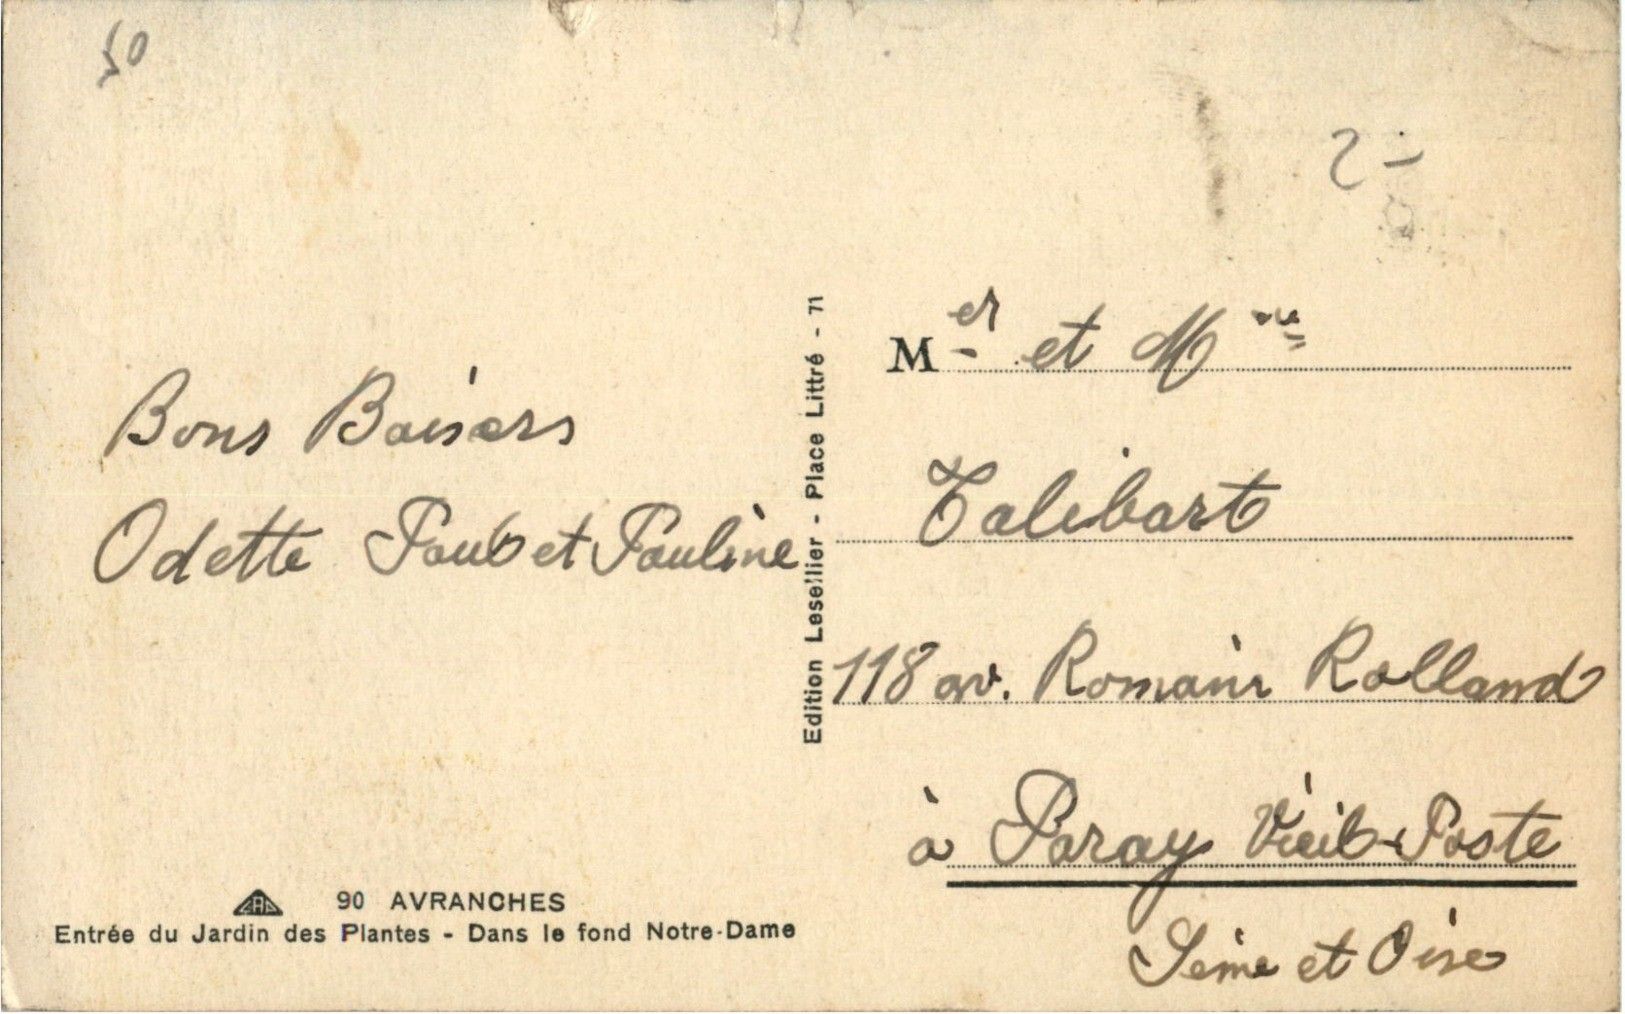 50
2 -
Mer et Mme
Talibart
118 av. Romain Rolland
à Paray Vieil-Poste
Seine et Oise
Bons Baisers
Odette Paul et Pauline
Edition Lesellier - Place Littré - 71
90 AVRANCHES
Entrée du Jardin des Plantes - Dans le fond Notre-Dame